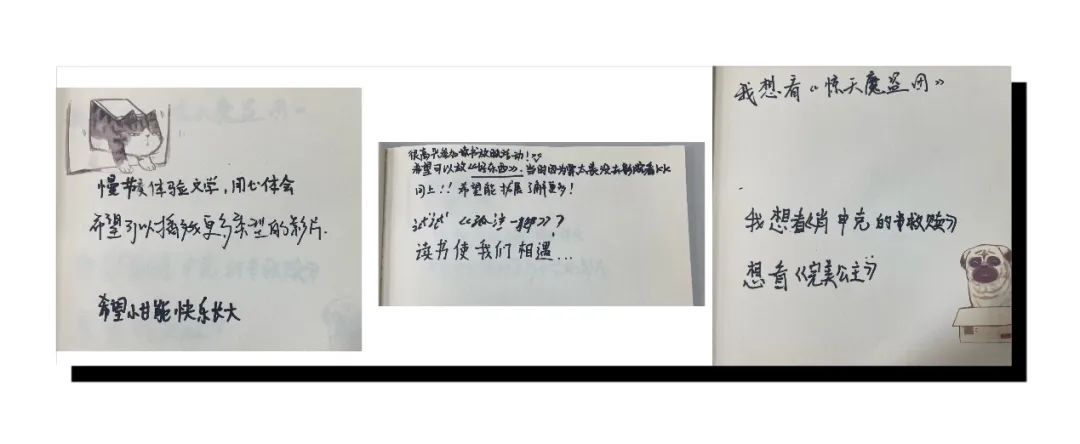 慢节奏体验文学，用心体会
希望可以播放更多类型的影片.
希望小甘能快乐长大
很高兴参加读书放映活动！
希望可以放《好东西》.当时因为票太贵没去影院看kk
同上！！希望能扩展了解更多！
试试《孤注一掷》？
读书使我们相遇...
我想看《惊天魔盗团》
我想看《肖申克的救赎》
想看《完美公主》